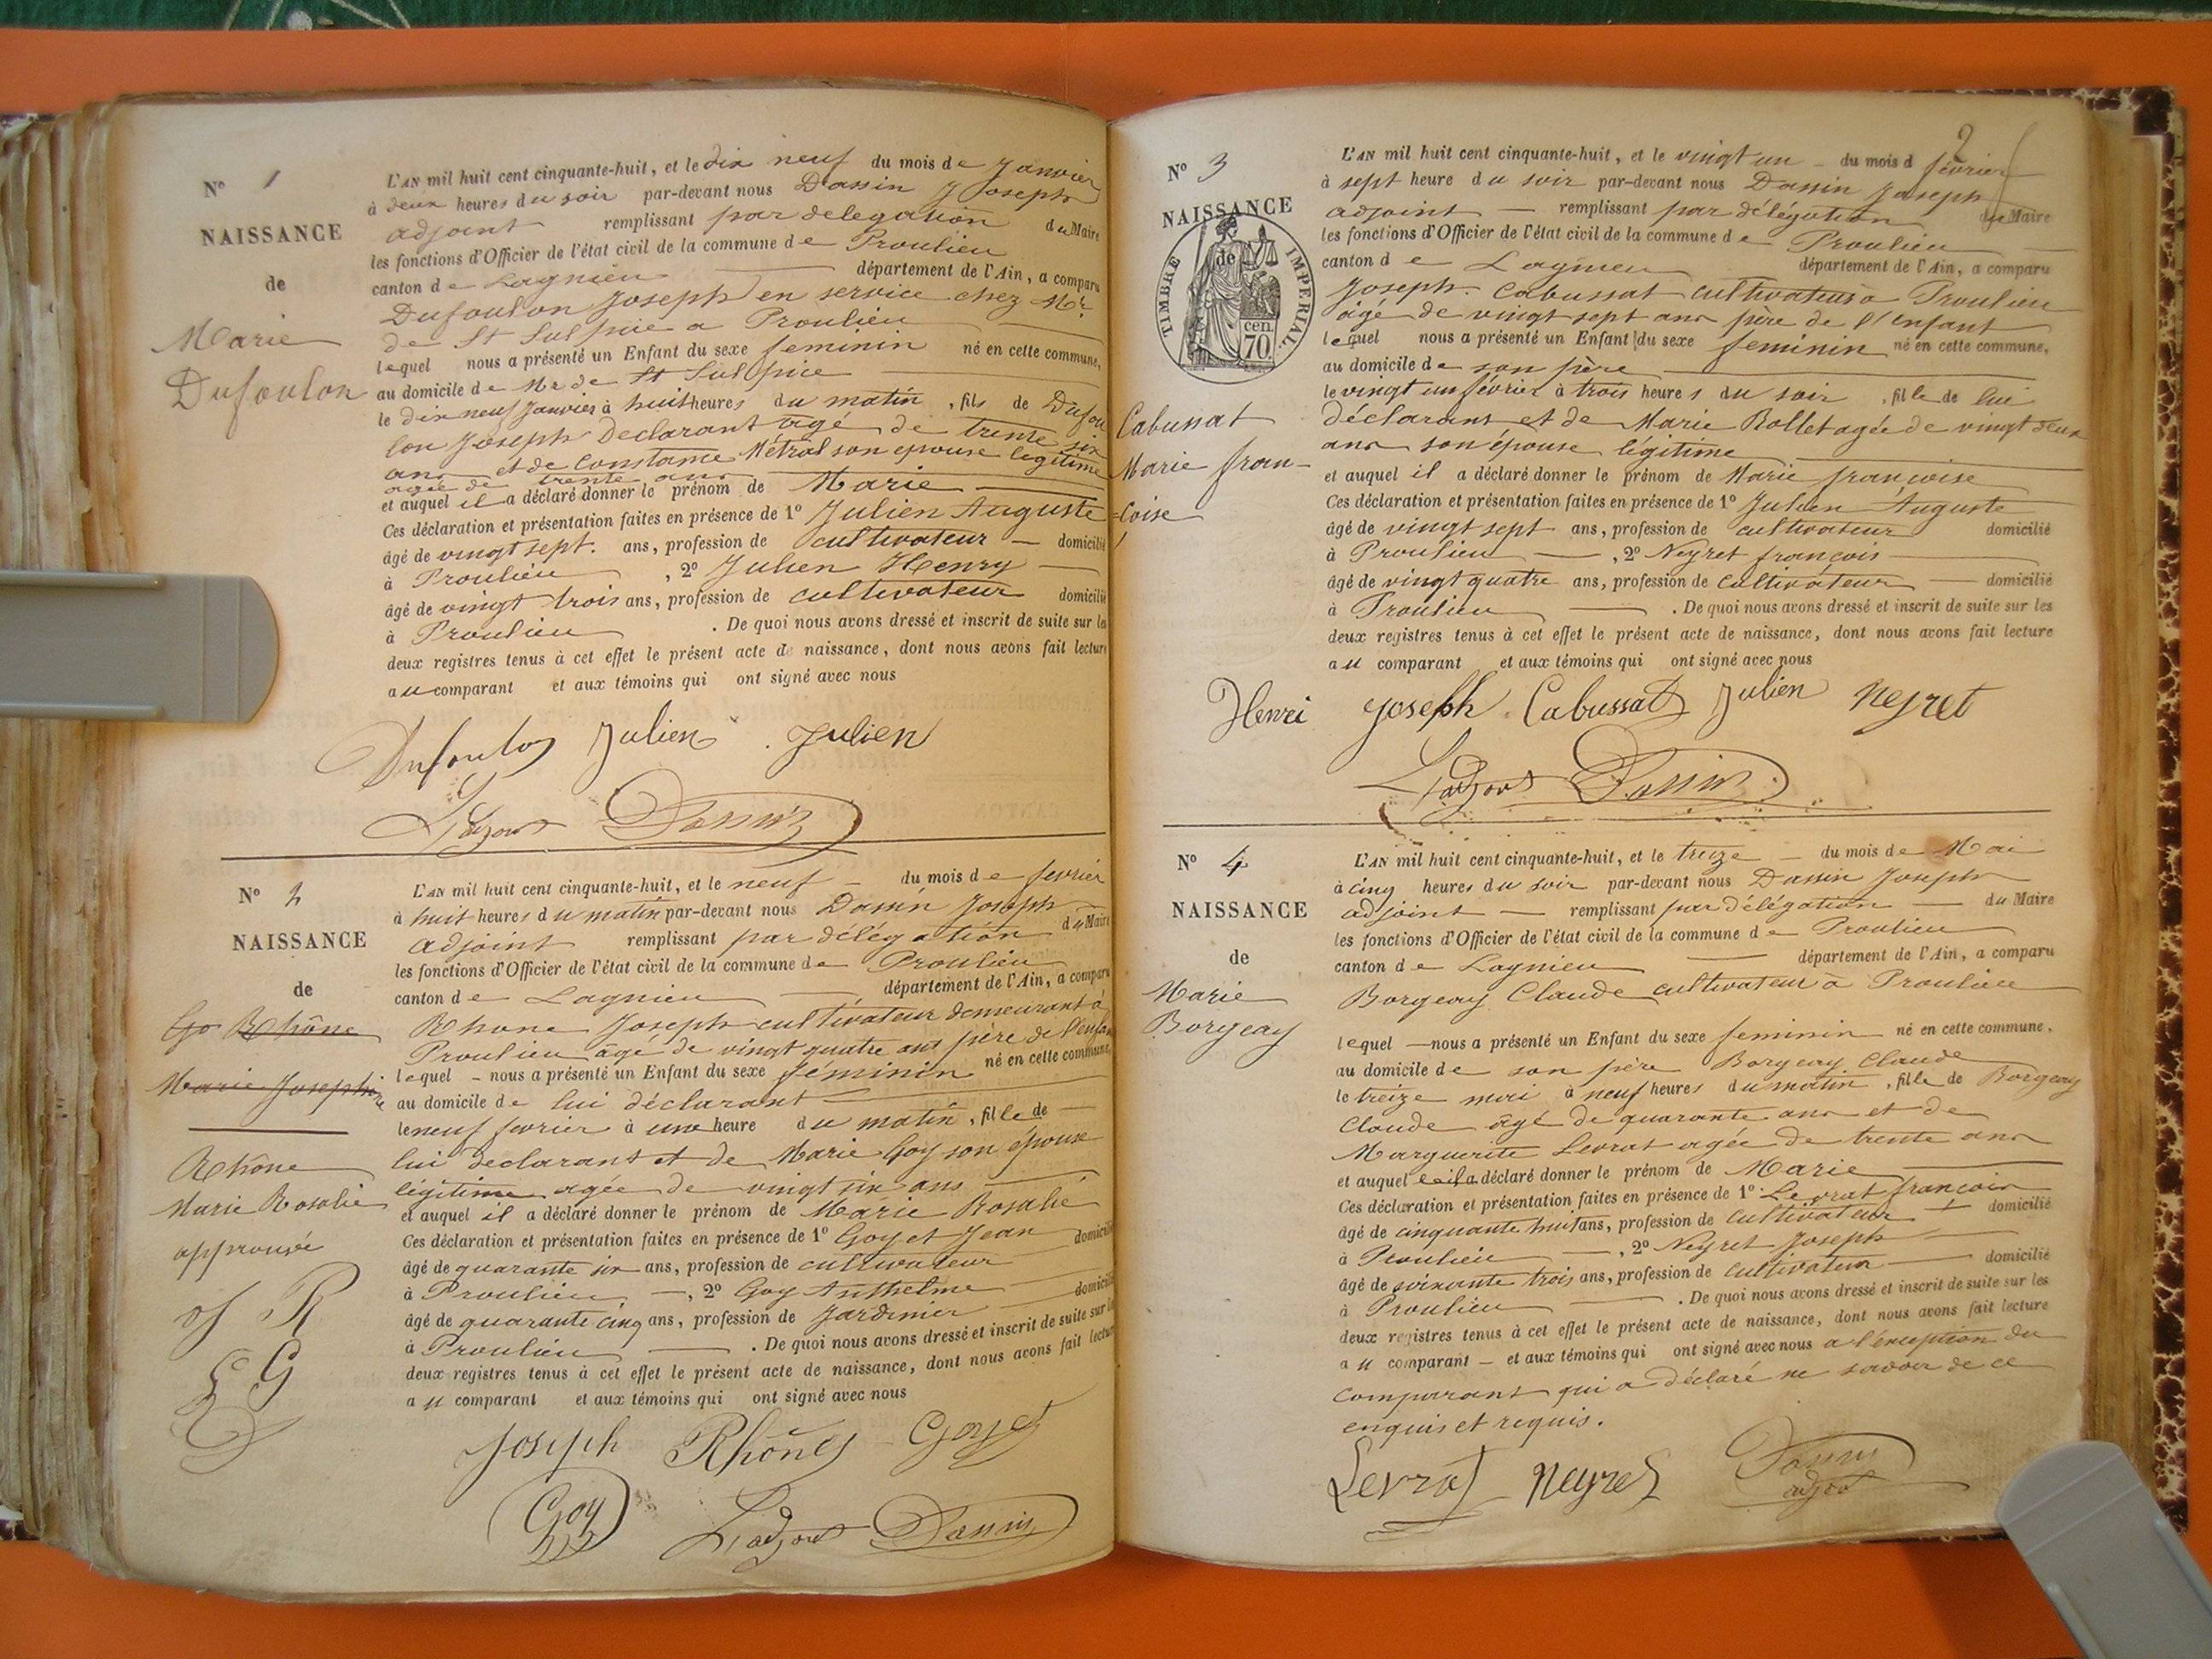 N° 1
NAISSANCE
de
Marie
Dufoulon
L'AN mil huit cent cinquante-huit, et le dix neuf du mois de Janvier
à deux heures du soir par-devant nous Dassin Joseph
adjoint remplissant par delegation du Maire
les fonctions d'Officier de l'état civil de la commune de Proulieu
canton de Lagnieu département de l'Ain, a comparu
Dufoulon Joseph en service chez Mr
de St Sulpice a Proulieu
lequel nous a présenté un Enfant du sexe feminin né en cette commune,
au domicile de Mr de St Sulpice
le dix neuf Janvier à huit heures du matin, fils de Dufou
lon Joseph Declarant agé de trente six
ans et de Constance Métral son epouse legitime
agée de trente ans
et auquel il a déclaré donner le prénom de Marie
Ces déclaration et présentation faites en présence de 1° Julien Auguste
âgé de vingt sept. ans, profession de cultivateur domicilié
à Proulieu , 2° Julien Henry
âgé de vingt trois ans, profession de cultivateur domicilié
à Proulieu . De quoi nous avons dressé et inscrit de suite sur les
deux registres tenus à cet effet le présent acte de naissance, dont nous avons fait lecture
au comparant et aux témoins qui ont signé avec nous
Dufoulon Julien Julien
L'adjoint Dassin
N° 2
NAISSANCE
de
Goy Rhône
Marie Josephine
Rhône
Marie Rosalie
approuvé
R
G
L'AN mil huit cent cinquante-huit, et le neuf du mois de fevrier
à huit heures du matin par-devant nous Dassin Joseph
adjoint remplissant par délégation du Maire
les fonctions d'Officier de l'état civil de la commune de Proulieu
canton de Lagnieu département de l'Ain, a comparu
Rhone Joseph cultivateur demeurant à
Proulieu âgé de vingt quatre ans père de l'enfant
lequel nous a présenté un Enfant du sexe féminin né en cette commune,
au domicile de lui déclarant
le neuf fevrier à une heure du matin, fille de
lui declarant et de Marie Goy son épouse
légitime agée de vingt six ans
et auquel il a déclaré donner le prénom de Marie Rosalie
Ces déclaration et présentation faites en présence de 1° Goyet Jean
âgé de quarante six ans, profession de cultivateur domicilié
à Proulieu , 2° Goy Anthelme
âgé de quarante cinq ans, profession de Jardinier domicilié
à Proulieu . De quoi nous avons dressé et inscrit de suite sur les
deux registres tenus à cet effet le présent acte de naissance, dont nous avons fait lecture
au comparant et aux témoins qui ont signé avec nous
Joseph Rhône Goyet
Goy L'adjoint Dassin
2
N° 3
NAISSANCE
de
TIMBRE IMPERIAL
70 cen.
Cabussat
Marie fran-
=coise
L'AN mil huit cent cinquante-huit, et le vingt un du mois d février
à sept heure du soir par-devant nous Dassin Joseph
adjoint remplissant par délégation du Maire
les fonctions d'Officier de l'état civil de la commune de Proulieu
canton de Lagnieu département de l'Ain, a comparu
Joseph Cabussat cultivateur à Proulieu
âgé de vingt sept ans père de l'enfant
lequel nous a présenté un Enfant du sexe feminin né en cette commune,
au domicile de son père
le vingt un février à trois heures du soir, fille de lui
déclarant et de Marie Rollet agée de vingt deux
ans son épouse légitime
et auquel il a déclaré donner le prénom de Marie françoise
Ces déclaration et présentation faites en présence de 1° Julien Auguste
âgé de vingt sept ans, profession de cultivateur domicilié
à Proulieu , 2° Neyret françois
âgé de vingt quatre ans, profession de cultivateur domicilié
à Proulieu . De quoi nous avons dressé et inscrit de suite sur les
deux registres tenus à cet effet le présent acte de naissance, dont nous avons fait lecture
au comparant et aux témoins qui ont signé avec nous
Henri Joseph Cabussat Julien Neyret
L'adjoint Dassin
N° 4
NAISSANCE
de
Marie
Borgeay
L'AN mil huit cent cinquante-huit, et le treize du mois de Mai
à cinq heures du soir par-devant nous Dassin Joseph
adjoint remplissant par délégation du Maire
les fonctions d'Officier de l'état civil de la commune de Proulieu
canton de Lagnieu département de l'Ain, a comparu
Borgeay Claude cultivateur à Proulieu
lequel nous a présenté un Enfant du sexe feminin né en cette commune,
au domicile de son père Borgeay Claude
le treize mai à neuf heures du matin, fille de Borgeay
Claude âgé de quarante ans et de
Marguerite Levrat agée de trente ans
et auquel il a déclaré donner le prénom de Marie
Ces déclaration et présentation faites en présence de 1° Levrat françois
âgé de cinquante huit ans, profession de cultivateur domicilié
à Proulieu , 2° Neyret Joseph
âgé de soixante trois ans, profession de cultivateur domicilié
à Proulieu . De quoi nous avons dressé et inscrit de suite sur les
deux registres tenus à cet effet le présent acte de naissance, dont nous avons fait lecture
au comparant et aux témoins qui ont signé avec nous a l'exception du
comparant qui a déclaré ne savoir de ce
enquis et requis.
Levrat Neyret Dassin
adjoint